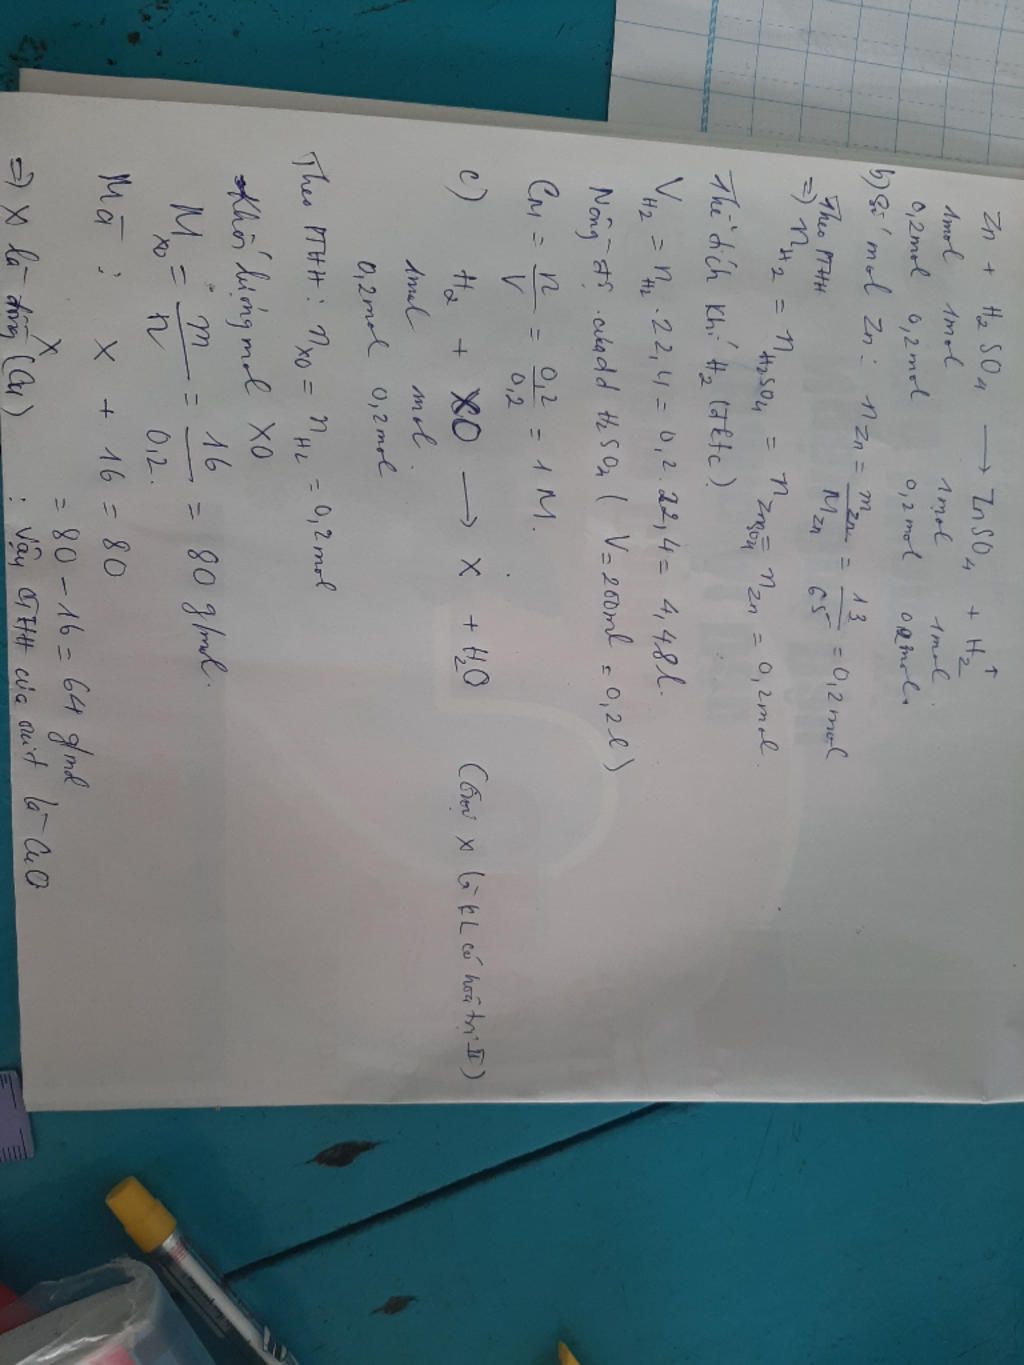 Zn + H₂SO₄ ⟶ ZnSO₄ + H₂↑
1mol 1mol 1mol 1mol
0,2mol 0,2mol 0,2mol 0,2mol
b) Số mol Zn: nZn = mZn/MZn = 13/65 = 0,2mol
Theo PTHH
⇒ nH₂ = nH₂SO₄ = nZnSO₄ = nZn = 0,2mol
Thể tích khí H₂ (đktc)
VH₂ = nH₂ . 22,4 = 0,2 . 22,4 = 4,48l.
Nồng độ của dd H₂SO₄ ( V = 200ml = 0,2l )
CM = n/V = 0,2/0,2 = 1M.
c) H₂ + XO ⟶ X + H₂O (Gọi X là KL có hoá trị II)
1mol mol
0,2mol 0,2mol
Theo PTHH: nXO = nH₂ = 0,2mol
Khối lượng mol XO
MXO = m/n = 16/0,2 = 80 g/mol.
Mà : X + 16 = 80
X = 80 - 16 = 64 g/mol
⇒ X là đồng (Cu) : Vậy CTHH của oxit là CuO